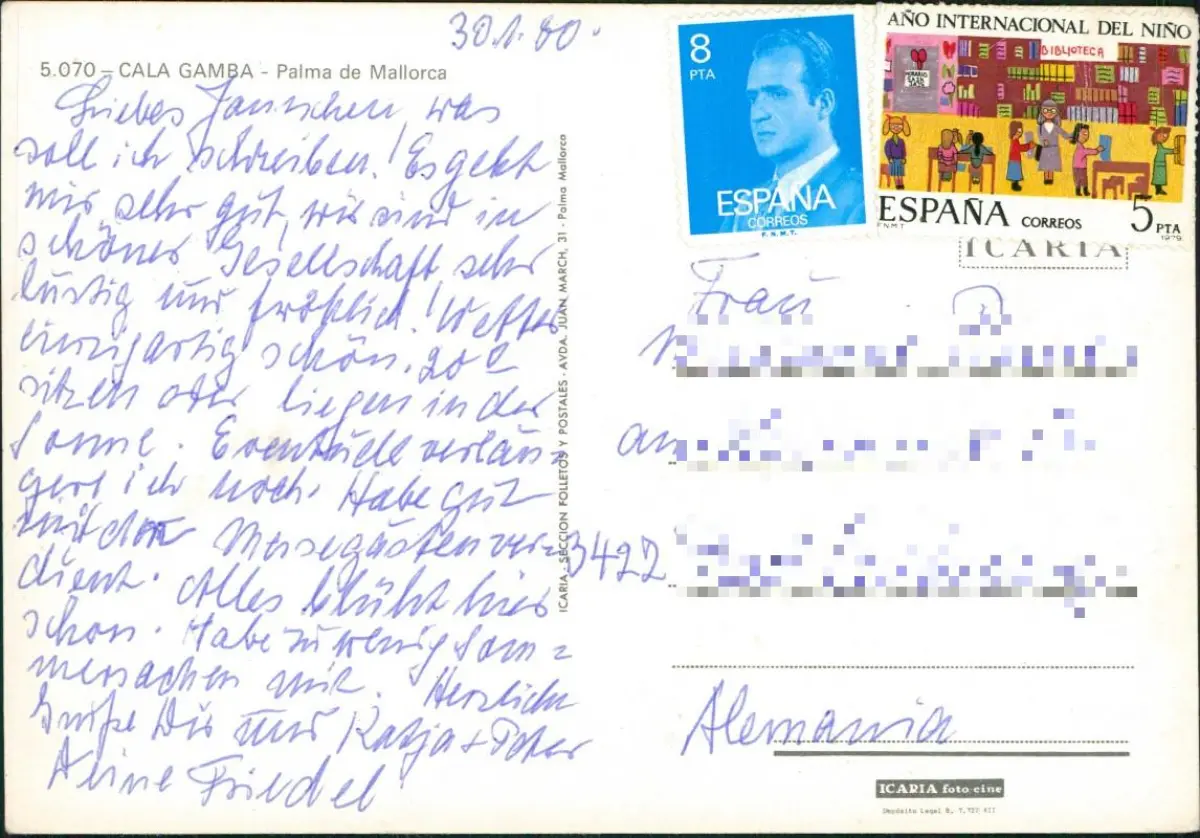 30.1.80.
5.070 – CALA GAMBA - Palma de Mallorca
Liebes Jannchen, was
soll ich schreiben! Es geht
mir sehr gut, wir sind in
schöner Gesellschaft, sehr
lustig und fröhlich! Wetter
einzigartig schön. 20°
sitzen oder liegen in der
Sonne. Eventuell verlän-
gere ich noch. Habe gut
mit den Messegästen ver-
dient. Alles blüht hier
schon. Habe zu wenig Som=
mersachen mit. Herzliche
Grüße Dir und Katja + Peter
Deine Friedel
ICARIA - SECCION FOLLETOS Y POSTALES - AVDA. JUAN MARCH, 31 - Palma Mallorca
8
PTA
ESPAÑA
CORREOS
F.N.M.T.
AÑO INTERNACIONAL DEL NIÑO
BIBLIOTECA
ESPAÑA CORREOS 5 PTA
FNMT 1979
ICARIA
Frau
an
3422
Alemania
ICARIA foto cine
Depósito Legal B.